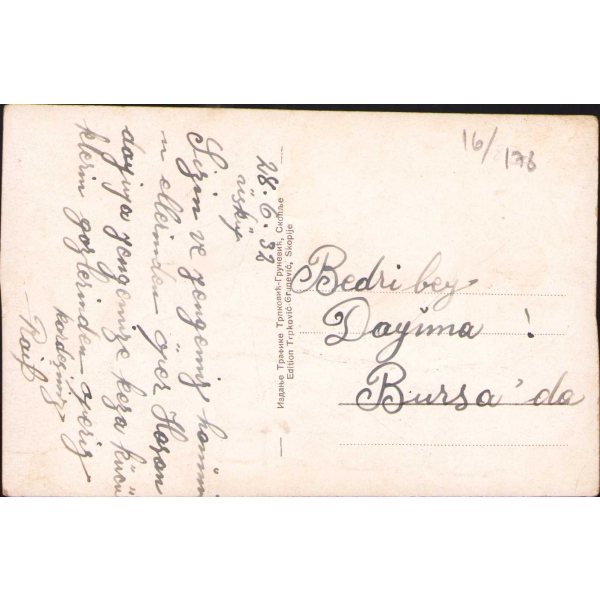 28.6.32
üsküp
Sizin ve yengemiz hanımı
n ellerinden öper Hasan
dayıya yengemize keza küçü
klerin gözlerinden öperiz
kardeşiniz
Raif
Издање Трафике Трпковић-Груневић, Скопље
Edition Trpković-Grunević, Skopije
16/
Bedri bey
Dayıma !
Bursa'da